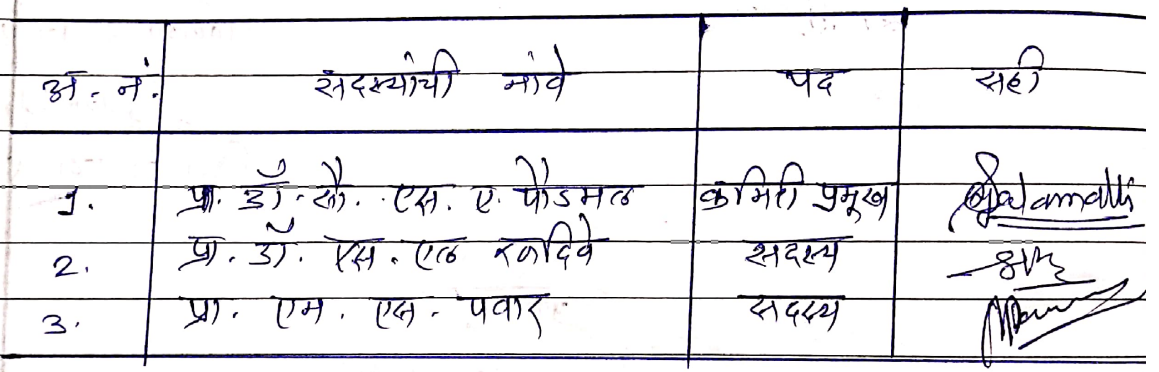 अ. नं. सदस्यांची नांवे पद सही
1. प्रा. डॉ. सौ. एस. ए. पौडमल कमिटी प्रमुख
2. प्रा. डॉ. एस. एल रणदिवे सदस्य
3. प्रा. एम. एस. पवार सदस्य